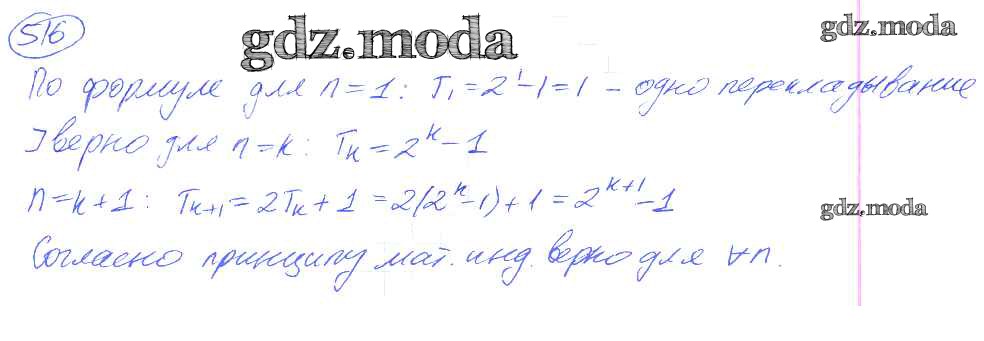 516
gdz.moda
gdz.moda
По формуле для n=1: T₁=2¹-1=1 - одно перекладывание
] верно для n=k: Tₖ=2ᵏ-1
n=k+1: Tₖ₊₁=2Tₖ+1=2(2ᵏ-1)+1=2ᵏ⁺¹-1
gdz.moda
Согласно принципу мат. инд. верно для ∀n.